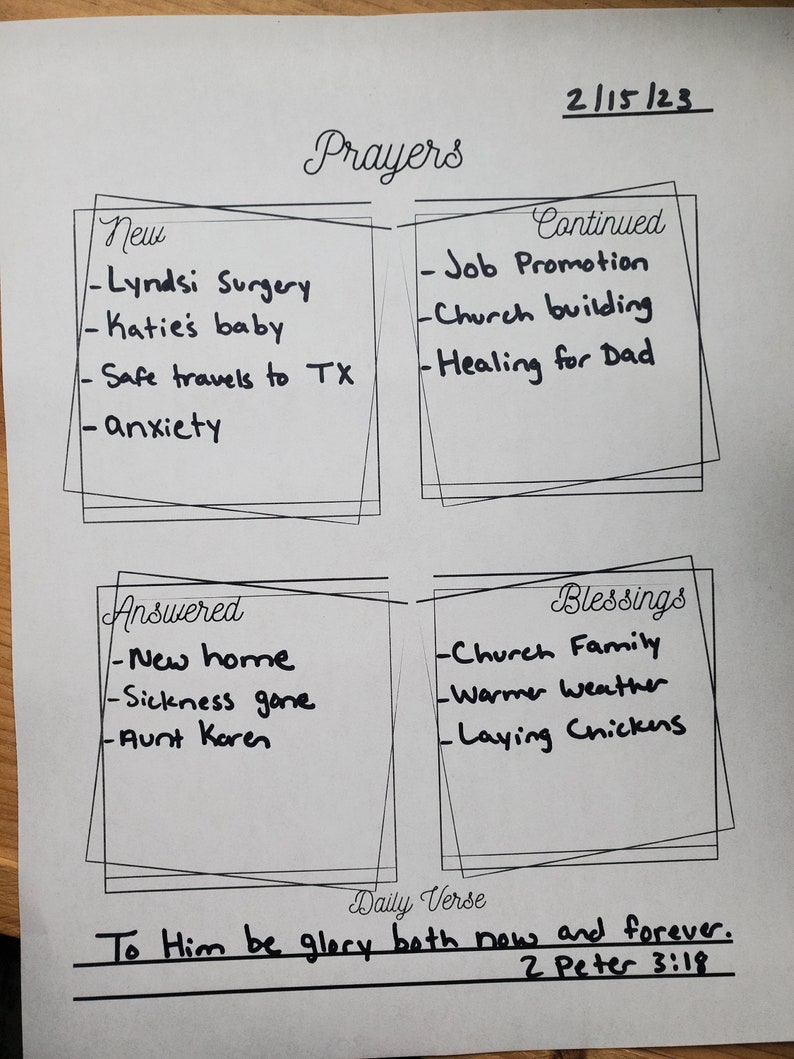 2/15/23
Prayers
New
- Lyndsi Surgery
- Katie's baby
- Safe travels to TX
- anxiety
Continued
- Job Promotion
- Church building
- Healing for Dad
Answered
- New home
- Sickness gone
- Aunt Karen
Blessings
- Church Family
- Warmer Weather
- Laying Chickens
Daily Verse
To Him be glory both now and forever.
2 Peter 3:18